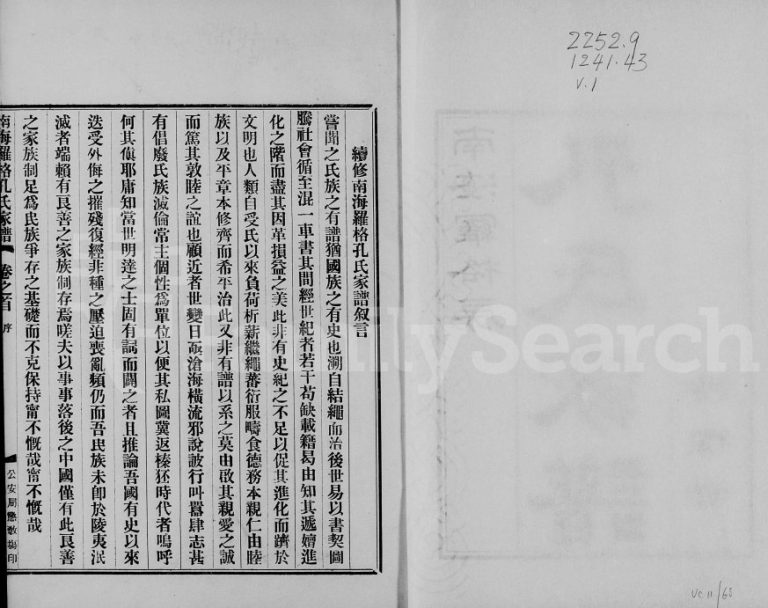 2252.9
1241.43
V.1
續修南海羅格孔氏家譜叙言
嘗聞之氏族之有譜猶國族之有史也溯自結繩而治後世易以書契圖
騰社會循至混一車書其間經世紀者若干苟缺載籍曷由知其遞嬗進
化之階而盡其因革損益之美此非有史紀之不足以促其進化而躋於
文明也人類自受氏以來負荷析薪繼繩蕃衍服疇食德務本親仁由睦
族以及平章本修齊而希平治此又非有譜以系之莫由啟其親愛之誠
而篤其敦睦之誼也顧近者世變日亟滄海橫流邪說詖行叫囂肆志甚
有倡廢氏族滅倫常主個性爲單位以便其私圖冀返榛狉時代者嗚呼
何其傎耶庸知當世明達之士固有詞而闢之者且推論吾國有史以來
迭受外侮之摧殘復經非種之壓迫喪亂頻仍而吾民族未卽於陵夷泯
滅者端賴有良善之家族制存焉嗟夫以事事落後之中國僅有此良善
之家族制足爲民族爭存之基礎而不克保持甯不慨哉甯不慨哉
南海羅格孔氏家譜 卷之首 序
公安局懋敏塲印
FamilySearch